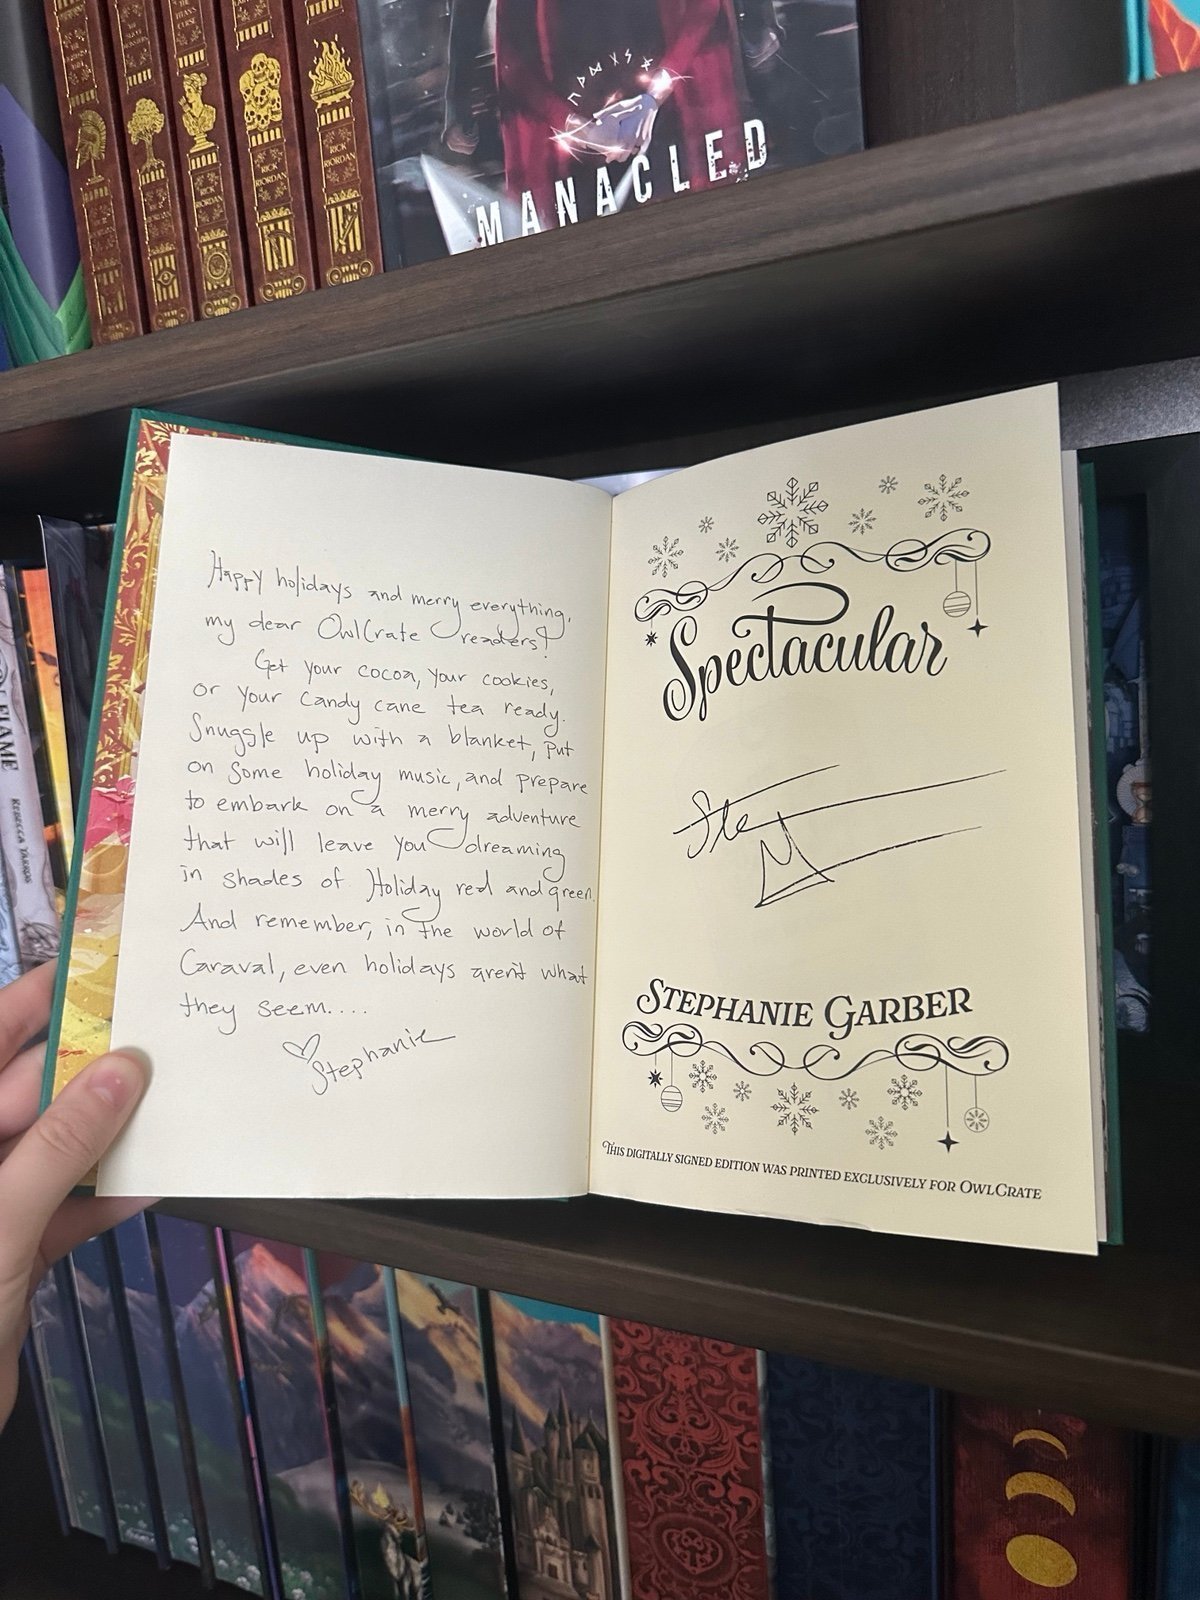 RICK RIORDAN
RICK RIORDAN
RICK RIORDAN
MANACLED
FLAME
REBECCA YARROS
Happy holidays and merry everything,
my dear OwlCrate readers!
Get your cocoa, your cookies,
or your candy cane tea ready.
Snuggle up with a blanket, put
on some holiday music, and prepare
to embark on a merry adventure
that will leave you dreaming
in shades of Holiday red and green.
And remember, in the world of
Caraval, even holidays aren't what
they seem....
Stephanie
Spectacular
STEPHANIE GARBER
THIS DIGITALLY SIGNED EDITION WAS PRINTED EXCLUSIVELY FOR OWLCRATE